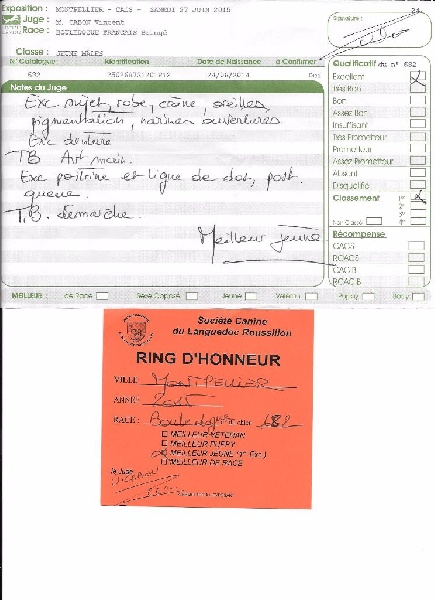 Exposition : MONTPELLIER - CACS - SAMEDI 27 JUIN 2015
Juge : M. Vincent
Race : BOULEDOGUE FRANCAIS Bringé
Signature :
Classe : JEUNE MALES
N° Catalogue Identification Date de Naissance à Confirmer
682 24/06/2014
Notes du Juge
Exc. sujet, robe, crâne, oreilles
pigmentation, narines ouvertures
Exc denture
TB
Exc poitrine et ligne de dos, port
queue.
T.B. démarche
Meilleur Jeune
Qualificatif du n° 682
Excellent
Très Bon
Bon
Assez Bon
Insuffisant
Très Prometteur
Prometteur
Assez Prometteur
Absent
Disqualifié
Classement 1er
2e
3e
Non Classé 4e
Récompense
CACS
RCACS
CACIB
RCACIB
MEILLEUR : de Race Sexe Opposé Jeune Vétéran Puppy Baby
Société Canine
du Languedoc Roussillon
RING D'HONNEUR
VILLE : MONTPELLIER
ANNÉE : 2015
RACE : 682
MEILLEUR VETERAN
MEILLEUR PUPPY
MEILLEUR JEUNE
MEILLEUR DE RACE
le Juge